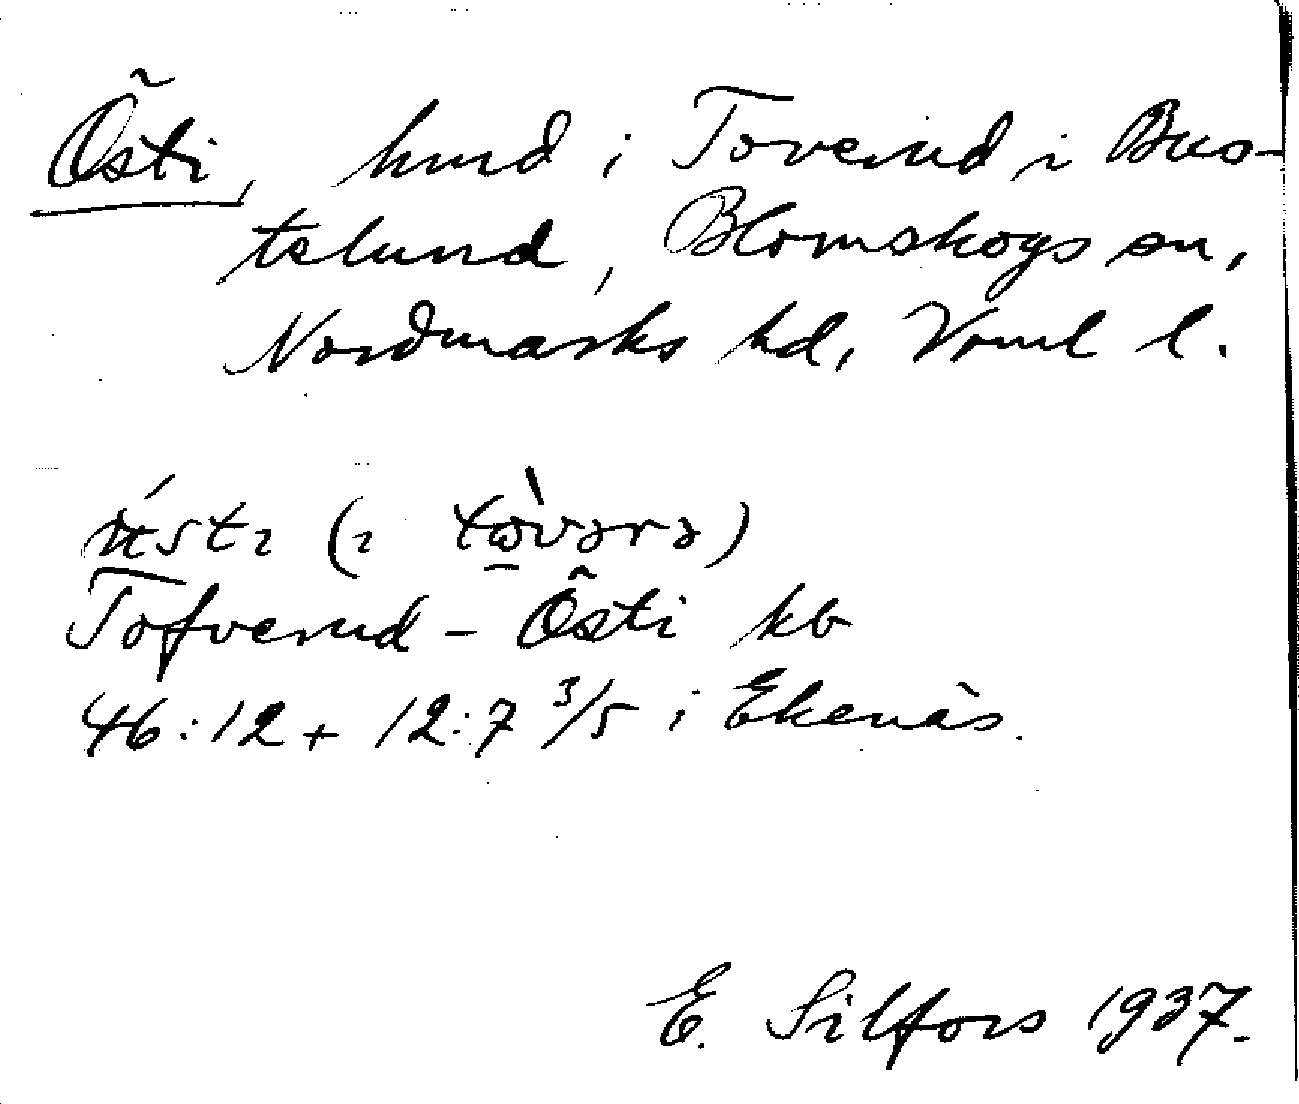 Östi, hmd i Toverud i Bus-
telund, Blomskogs sn,
Nordmarks hd, Vrml l.
(ı tὼvərə)
Tofverud - Östi kb
46:12 + 12:7 3/5 i Ekenäs.
E. Silfors 1937.